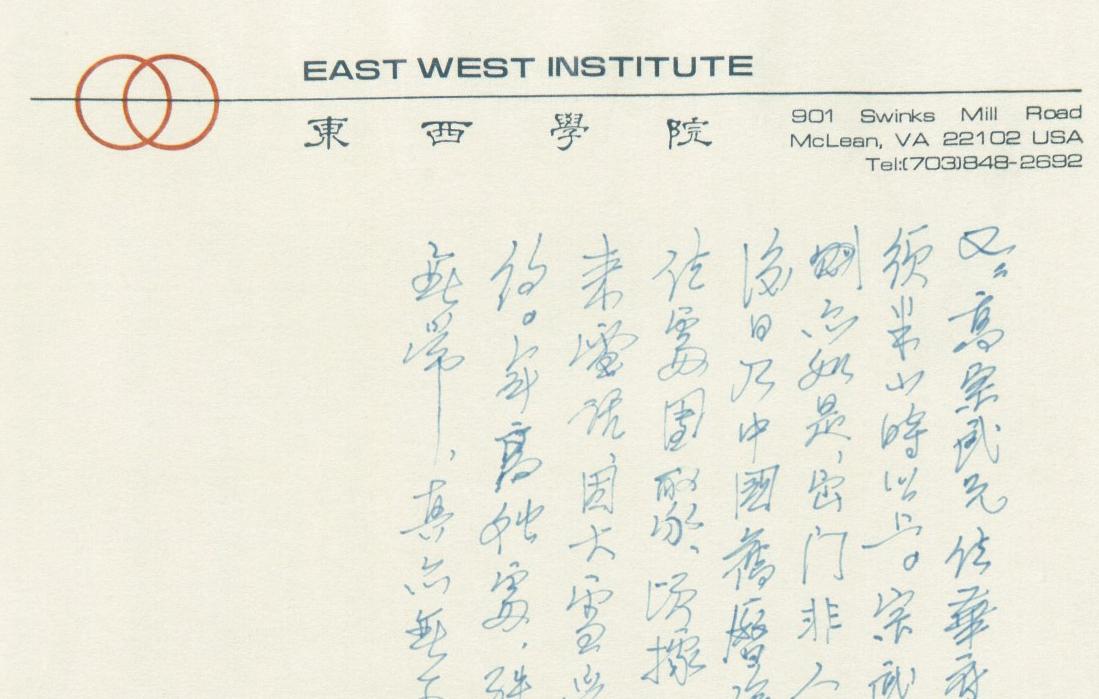 EAST WEST INSTITUTE
東西學院
901 Swinks Mill Road
McLean, VA 22102 USA
Tel:(703)848-2692
又：高宗武兄住華府
須半小時以上。宗武
亦如是，出门非人
後日乃中國舊曆
住處團聚，頃據
来電話因大雪
約。年高獨處，
無常，真亦無